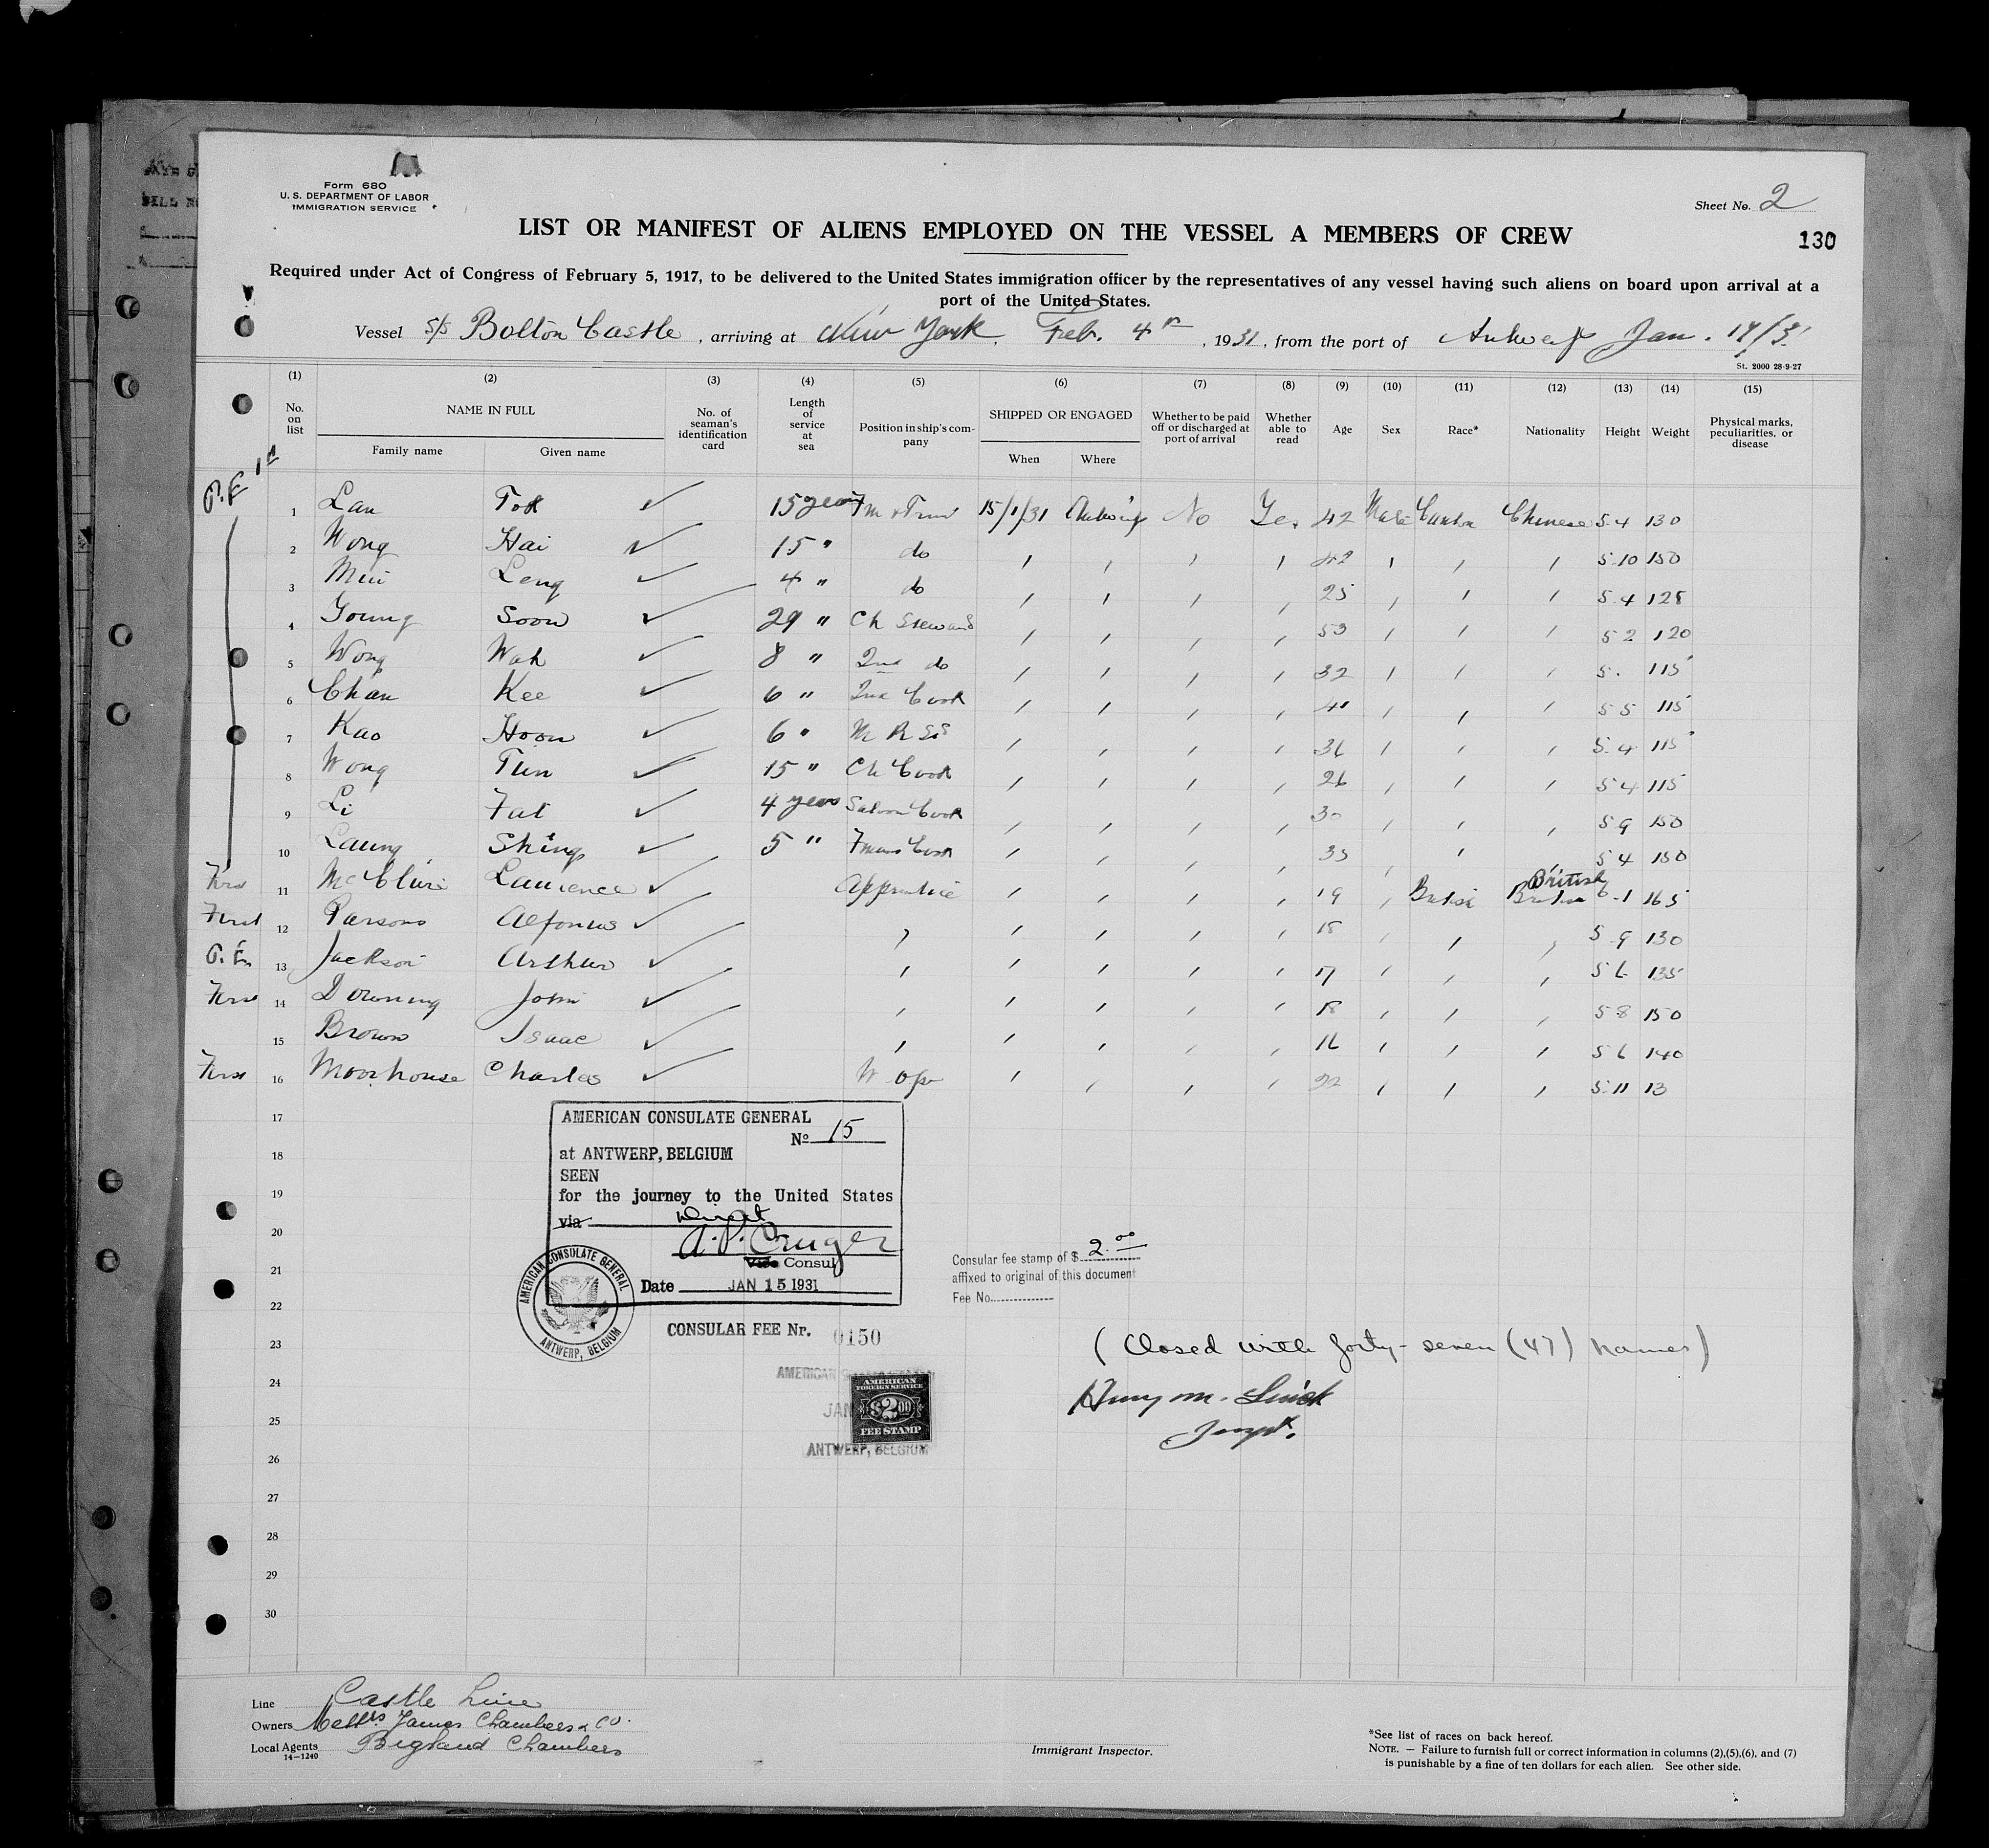 Form 680
U. S. DEPARTMENT OF LABOR
IMMIGRATION SERVICE
Sheet No. 2
LIST OR MANIFEST OF ALIENS EMPLOYED ON THE VESSEL A MEMBERS OF CREW
130
Required under Act of Congress of February 5, 1917, to be delivered to the United States immigration officer by the representatives of any vessel having such aliens on board upon arrival at a
port of the United States.
Vessel S/S Bolton Castle, arriving at New York, Feb. 4th, 1931, from the port of Antwerp Jan.
St. 2000 28-9-27
(1) (2) (3) (4) (5) (6) (7) (8) (9) (10) (11) (12) (13) (14) (15)
No. on list NAME IN FULL No. of seaman's identification card Length of service at sea Position in ship's company SHIPPED OR ENGAGED Whether to be paid off or discharged at port of arrival Whether able to read Age Sex Race* Nationality Height Weight Physical marks, peculiarities, or disease
Family name Given name When Where
1 Lau ✓ 15 years 15/1/31 Antwerp No Yes 42 Male Chinese 5 4 130
2 Wong Hai ✓ 15 " do 5 10 150
3 Mui Leng ✓ 4 " do 25 5 4 128
4 Young Soon ✓ 29 " Ch Steward 53 5 2 120
5 Wong Wah ✓ 8 " 2nd do 32 5 . 115
6 Chan Kee ✓ 6 " 2nd Cook 5 5 115
7 Kao Hoon ✓ 6 " 36 5 4 115
8 Wong ✓ 15 " Ch Cook 26 5 4 115
9 Li Fat ✓ 4 years Saloon Cook 30 5 9 150
10 Laung Shing ✓ 5 " Cook 35 5 4 150
11 McClure Laurence ✓ Apprentice 19 British British 6 1 165
12 Parsons ✓ 18 5 9 130
P.E. 13 Jackson Arthur ✓ 17 5 6 135
14 Downing John ✓ 18 5 8 150
15 Brown Isaac ✓ 16 5 6 140
16 Moorhouse Charles ✓ W op 22 5 11 13
17
18
19
20
21
22
23
24
25
26
27
28
29
30
AMERICAN CONSULATE GENERAL
No 15
at ANTWERP, BELGIUM
SEEN
for the journey to the United States
via direct
A. P. Cruger
Vice Consul
Date JAN 15 1931
AMERICAN CONSULATE GENERAL
ANTWERP, BELGIUM
CONSULAR FEE Nr. 0150
Consular fee stamp of $ 2.00
affixed to original of this document
Fee No.
(Closed with forty-seven (47) names)
AMERICAN
FOREIGN SERVICE
$2.00
FEE STAMP
JAN
ANTWERP, BELGIUM
Line Castle Line
Owners Messrs James Chambers & Co.
Local Agents Chambers
14—1240
Immigrant Inspector.
*See list of races on back hereof.
NOTE. — Failure to furnish full or correct information in columns (2),(5),(6), and (7)
is punishable by a fine of ten dollars for each alien. See other side.